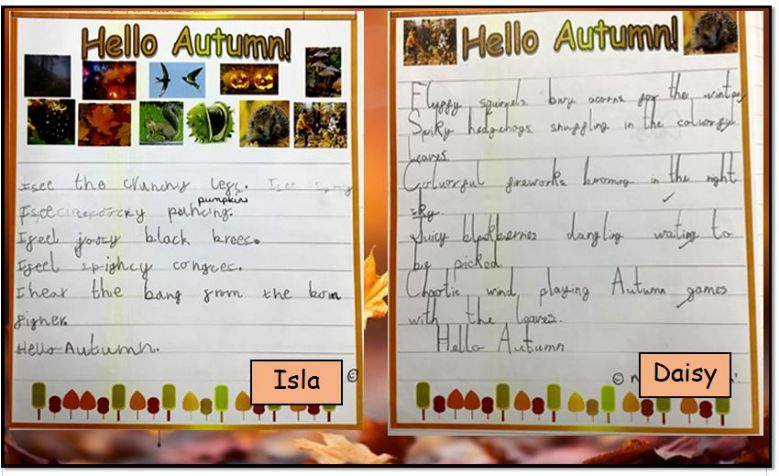 Hello Autumn!
I see the crunchy legs. I see
pumpkins
I see creepoocky puncing.
I feel joosy black brees.
I feel spighcy congces.
I hear the bang from the bom
figher.
Hello Autumn.
Isla
Hello Autumn!
Fluffy squirrels bury acorns for the winter
Spiky hedgehogs snuggling in the colourful
leaves
Colourful fireworks booming in the night
sky.
Juicy blackberries dangling waiting to
be picked
Chaotic wind playing Autumn games
with the leaves.
Hello Autumn
Daisy